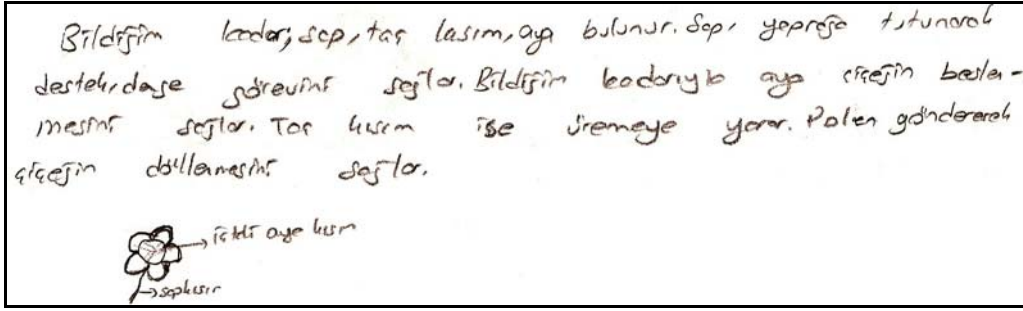 Bildiğim kadar, sap, taç kısım, aya bulunur. Sap, yaprağa tutunarak
destek, görevini sağlar. Bildiğim kadarıyla aya çiçeğin beslen-
mesini sağlar. Taç kısım ise üremeye yarar. Polen göndererek
çiçeğin döllenmesini sağlar.
aya kısım
sap kısır